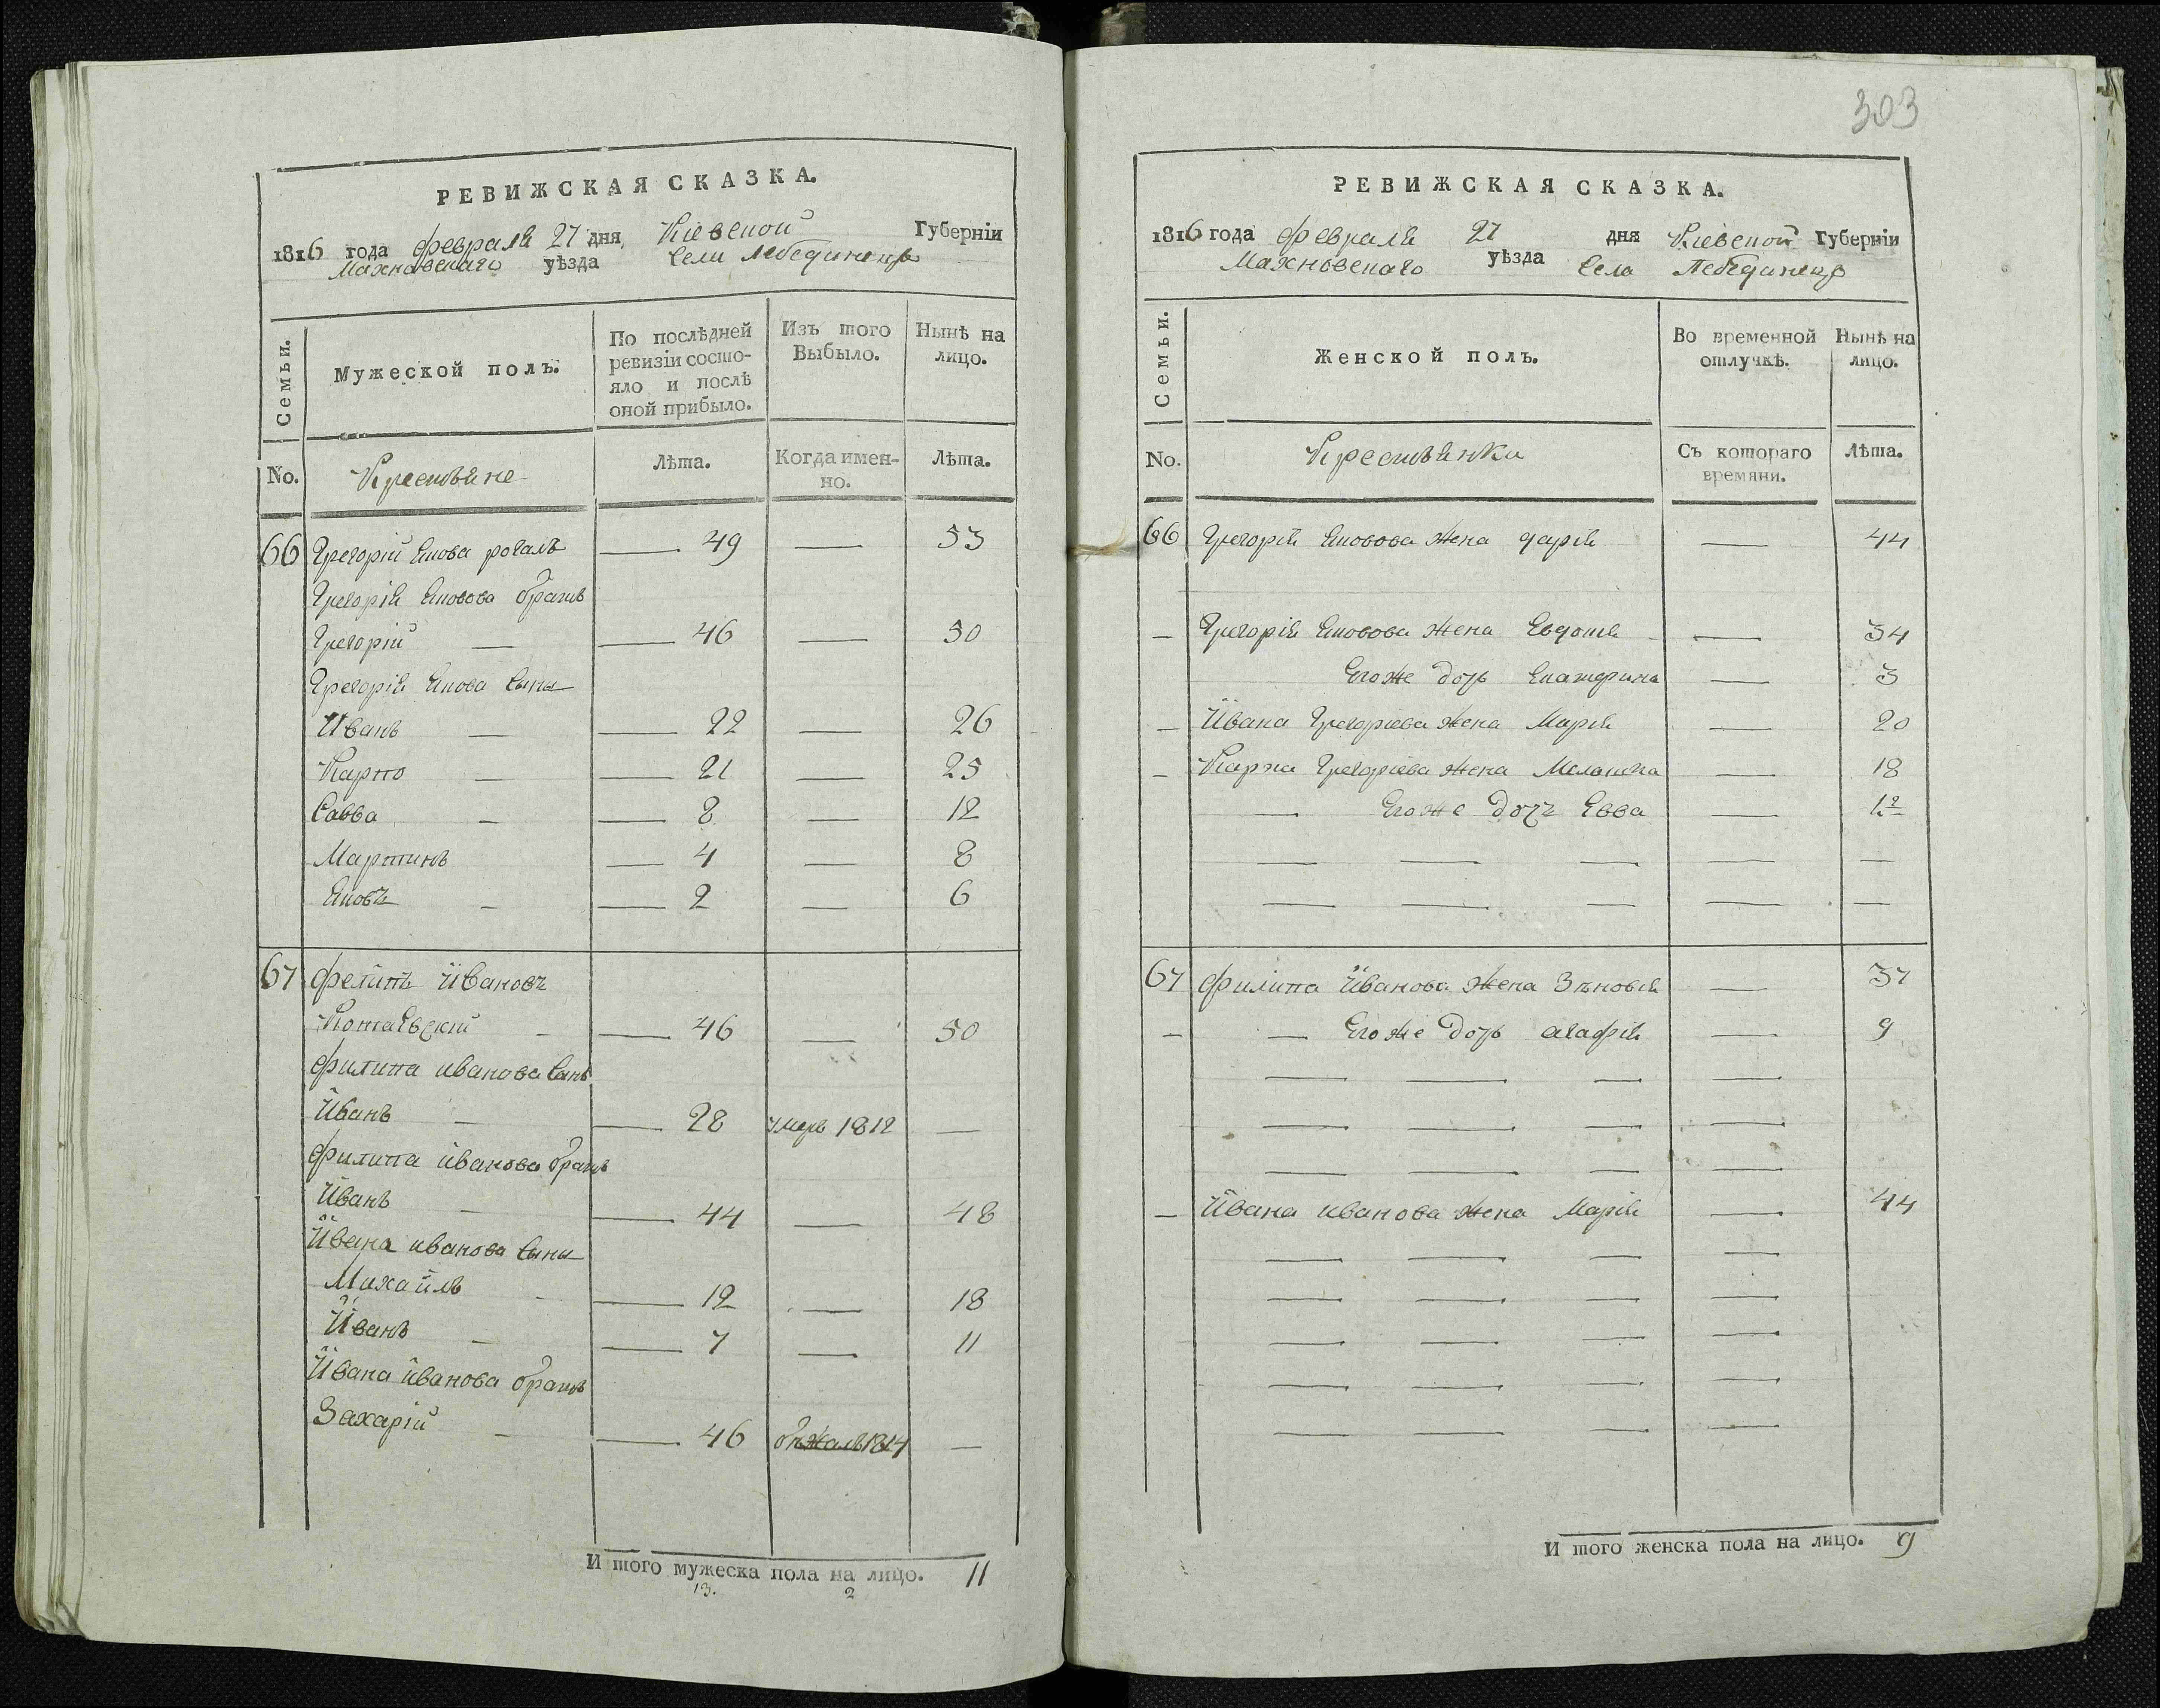 РЕВИЖСКАЯ СКАЗКА.
1816 года февраля 27 дня Киевской Губерніи
Махновскаго уѣзда Села Лебединецъ
Семьи.
Мужеской полъ.
По послѣдней ревизіи состояло и послѣ оной прибыло.
Изъ того Выбыло.
Нынѣ на лицо.
No.
Крестьяне
Лѣта.
Когда именно.
Лѣта.
66 Грегорій Якова рогаль — 49 — 53
Грегорія Яковова братъ
Грегорій — — 46 — 50
Грегорія Якова сыны
Иванъ — — 22 — 26
Карпо — — 21 — 25
Савва — — 8 — 12
Мартинъ — 4 — 8
Яковъ — — 2 — 6
67 Филипъ Ивановъ
— 46 — 50
Филипа иванова сынъ
Иванъ — — 28 умеръ 1812 —
Филипа иванова братъ
Иванъ — — 44 — 48
Ивана иванова сыны
Михайлъ — — 12 — 18
Иванъ — — 7 — 11
Ивана иванова братъ
Захарій — — 46 бѣжалъ 1814 —
И того мужеска пола на лицо. 11
13. 2
303
РЕВИЖСКАЯ СКАЗКА.
1816 года Февраля 27 дня Киевской Губерніи
Махновскаго уѣзда Села Лебединецъ
Семьи.
Женской полъ.
Во временной отлучкѣ.
Нынѣ на лицо.
No.
Крестьянки
Съ котораго времяни.
Лѣта.
66 Грегорія Яковова жена дарія — 44
— Грегорія Яковова жена Евдокія — 34
Егоже дочь Екатерина — 3
— Ивана Грегоріева жена Марія — 20
— Карпа Грегоріева жена Малашка — 18
— Егоже дочь Евва — 1½
— — — — —
— — — — —
67 Филипа Иванова жена Зѣновія — 37
— — Егоже дочь агафія — 9
— — — —
— — — —
— — — —
— Ивана иванова жена Марія — 44
— — — —
— — — —
— — — —
— — — —
— — — —
И того женска пола на лицо. 9